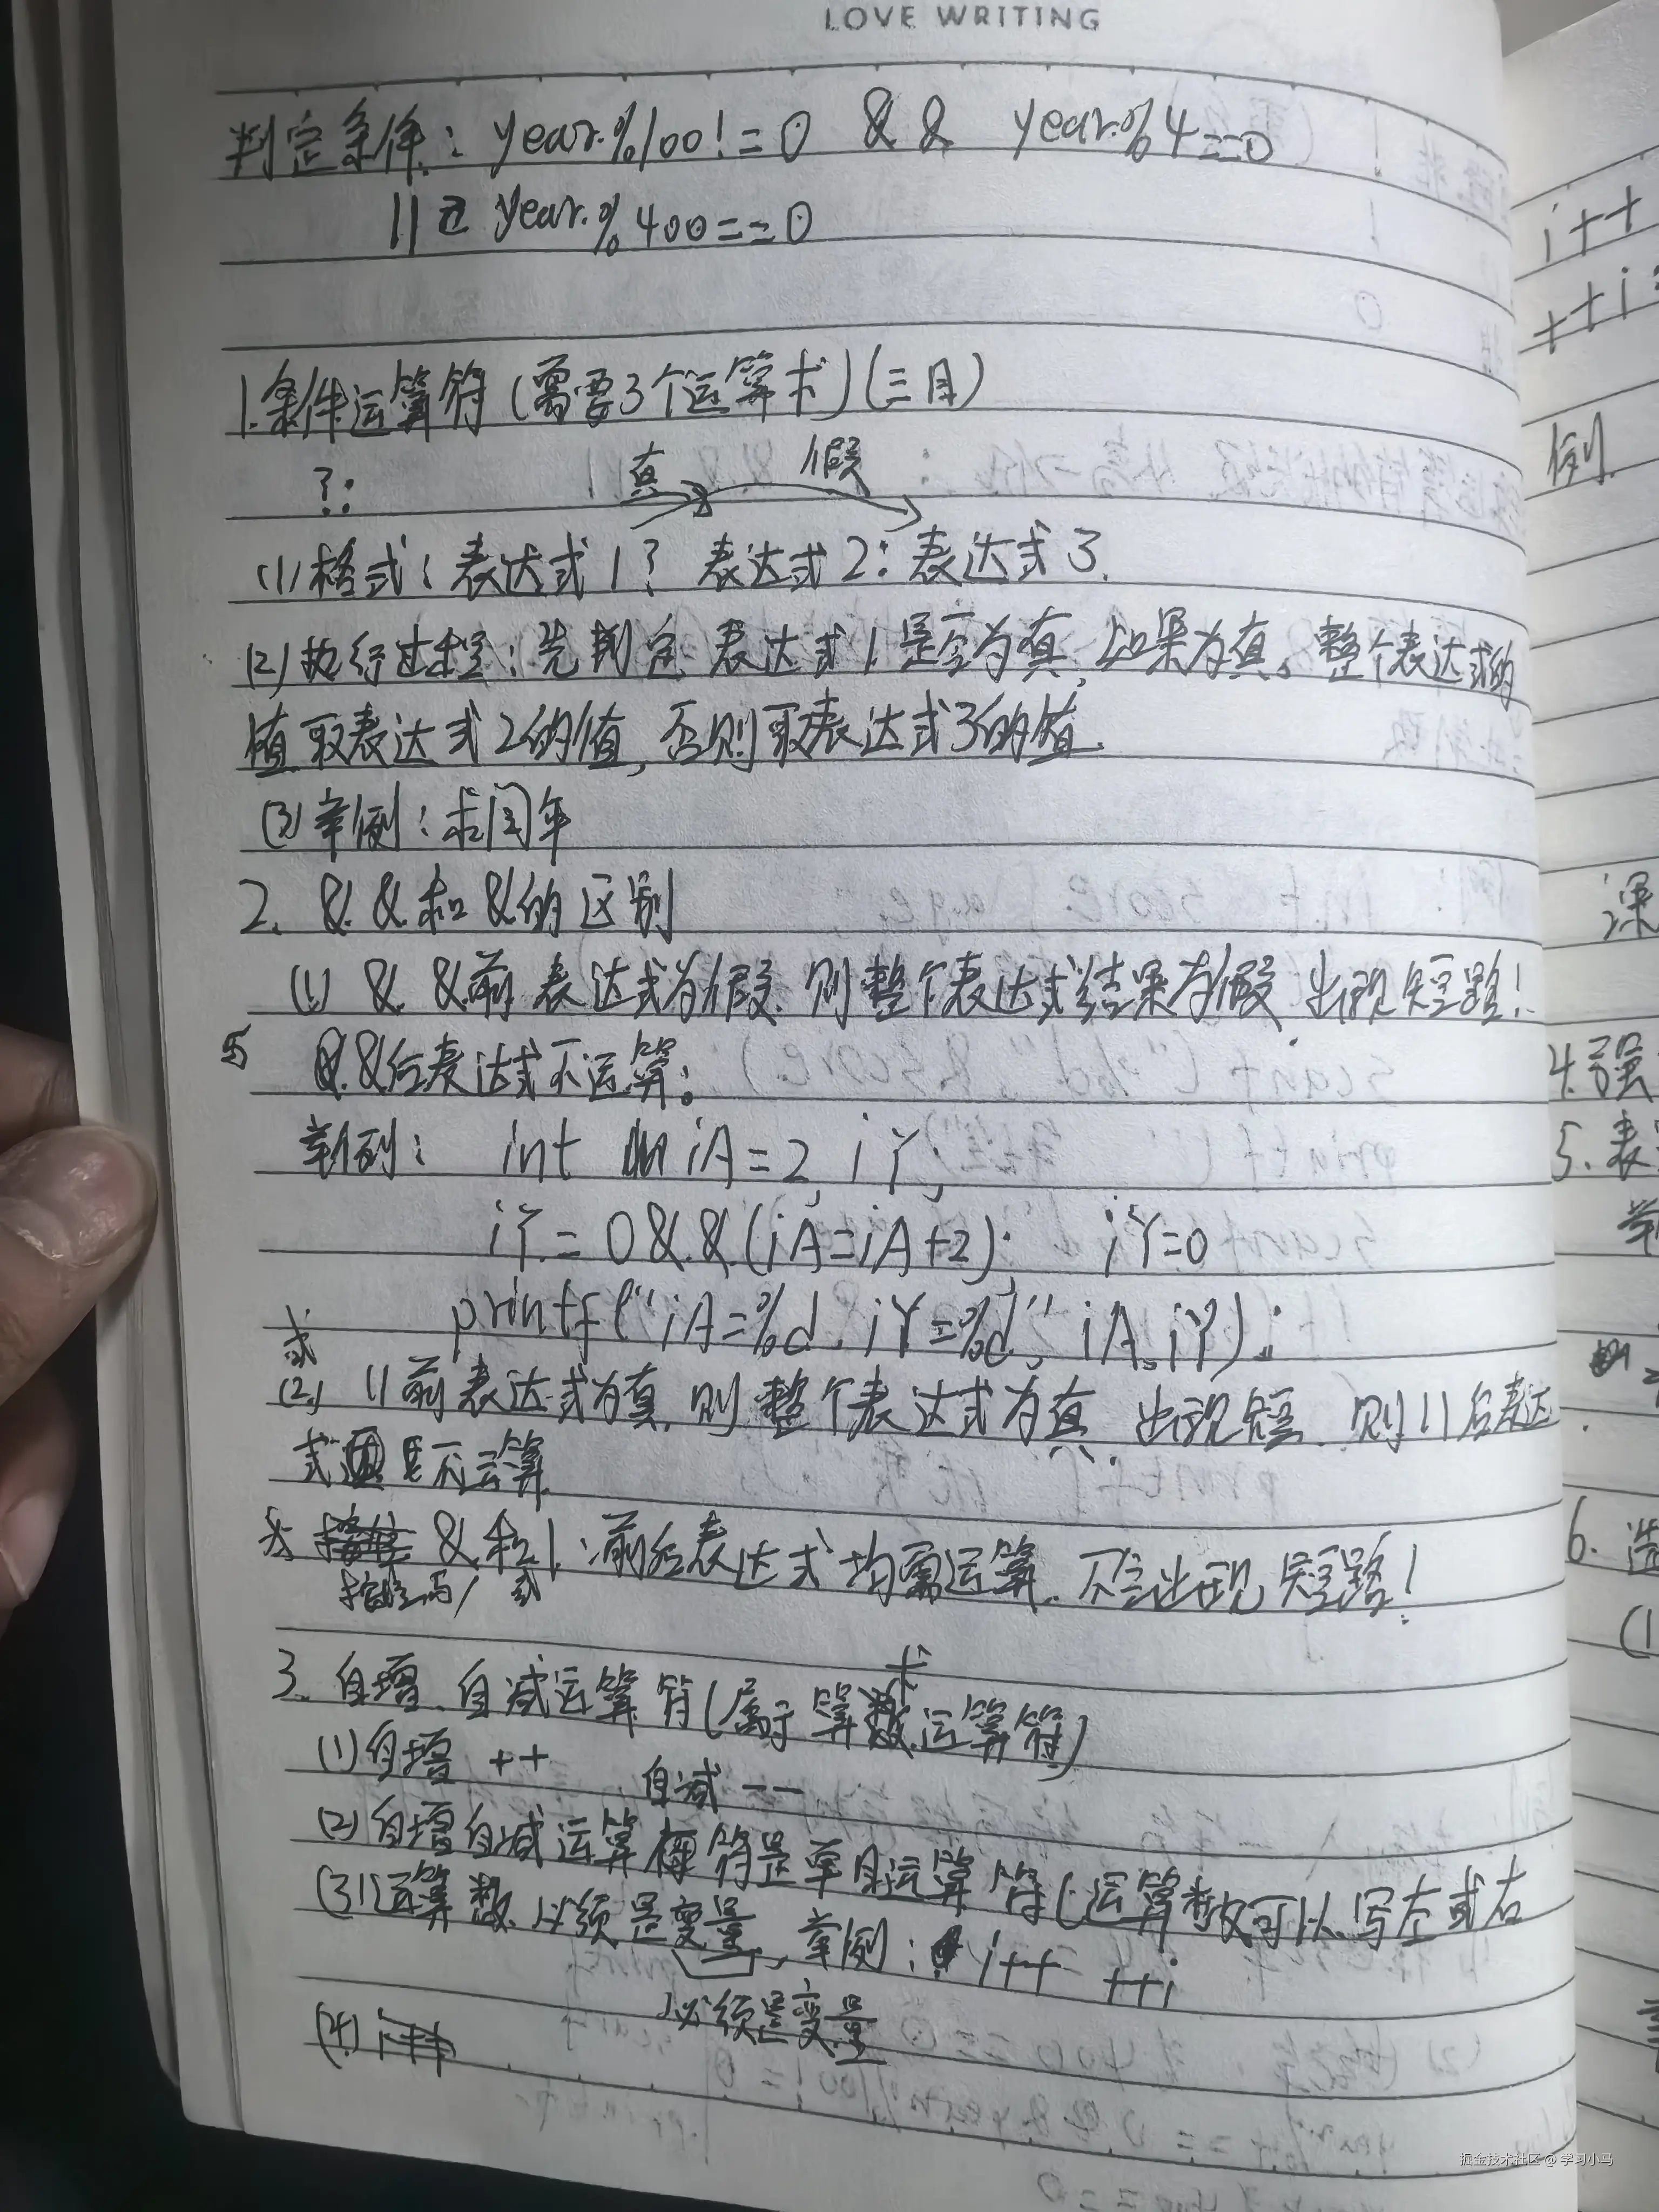 LOVE WRITING
判定条件: year%100!=0 && year%4==0
|| year%400==0
1.条件运算符(需要3个运算术)(三目)
?:
真 假
(1)格式:表达式1? 表达式2:表达式3.
(2)执行过程:先判定表达式1是否为真,如果为真。整个表达式的
值取表达式2的值,否则取表达式3的值.
(3)举例:求闰年
2. &&和&的区别
(1) &&前表达式为假.则整个表达式结果为假.出现短路!
&&后表达式不运算;
举例: int iA=2, iY;
iY=0&&(iA=iA+2); iY=0
printf("iA=%d,iY=%d",iA,iY);
或
(2) ||前表达式为真,则整个表达式为真.出现短.则||后表达
式不运算
&和|:前后表达式均需运算.不会出现短路!
按位与/或
3.自增.自减运算符(属于算术运算符)
(1)自增 ++ 自减 --
(2)自增自减运算符是单目运算符(运算数可以写左或右
(3)运算数必须是变量,举例: i++ ++i
必须是变量
(4)
i++
++i
例
深
4.强
5.表
6.选
(1
掘金技术社区 @ 学习小马